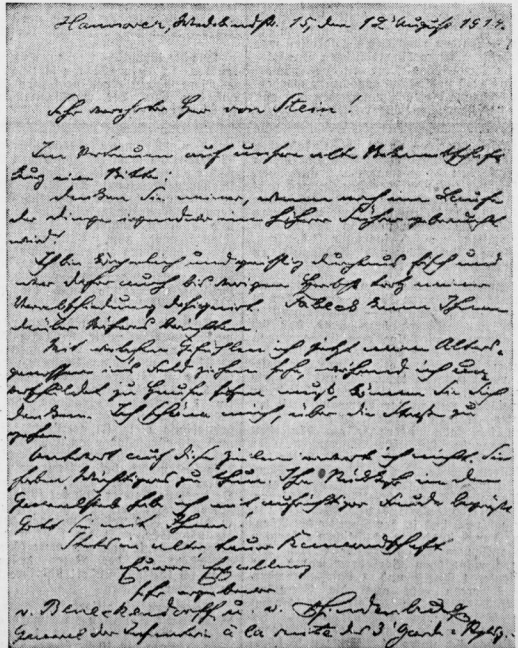 Hannover, Wedekindstr. 15, den 12 August 1914.
Sehr verehrter Herr von Stein!
Im Vertrauen auf unsere alte Bekanntschaft
eine Bitte:
denken Sie meiner, wenn noch im Laufe
der Dinge irgendwo ein höherer Führer gebraucht
wird!
Ich bin körperlich und geistig durchaus frisch und
war daher auch bis vorigen Herbst trotz meiner
Verabschiedung designirt. Fabeck kann Ihnen
darüber Näheres berichten.
Mit welchen Gefühlen ich jetzt meine Alters-
genossen ins Feld ziehen sehe, während ich un-
verschuldet zu Hause sitzen muß, können Sie Sich
denken. Ich schäme mich, über die Straße zu
gehen.
Antwort auf diese Zeilen erwarte ich nicht. Sie
haben Wichtigeres zu thun. Ihr in den
Generalstab habe ich mit aufrichtiger Freude begrüßt.
Gott sei mit Ihnen
Stets in alter, treuer Kameradschaft
Euerer Excellenz
sehr ergebener
v. Beneckendorff u. v. Hindenburg
General der Infanterie à la suite des 3 Garde-Regts.